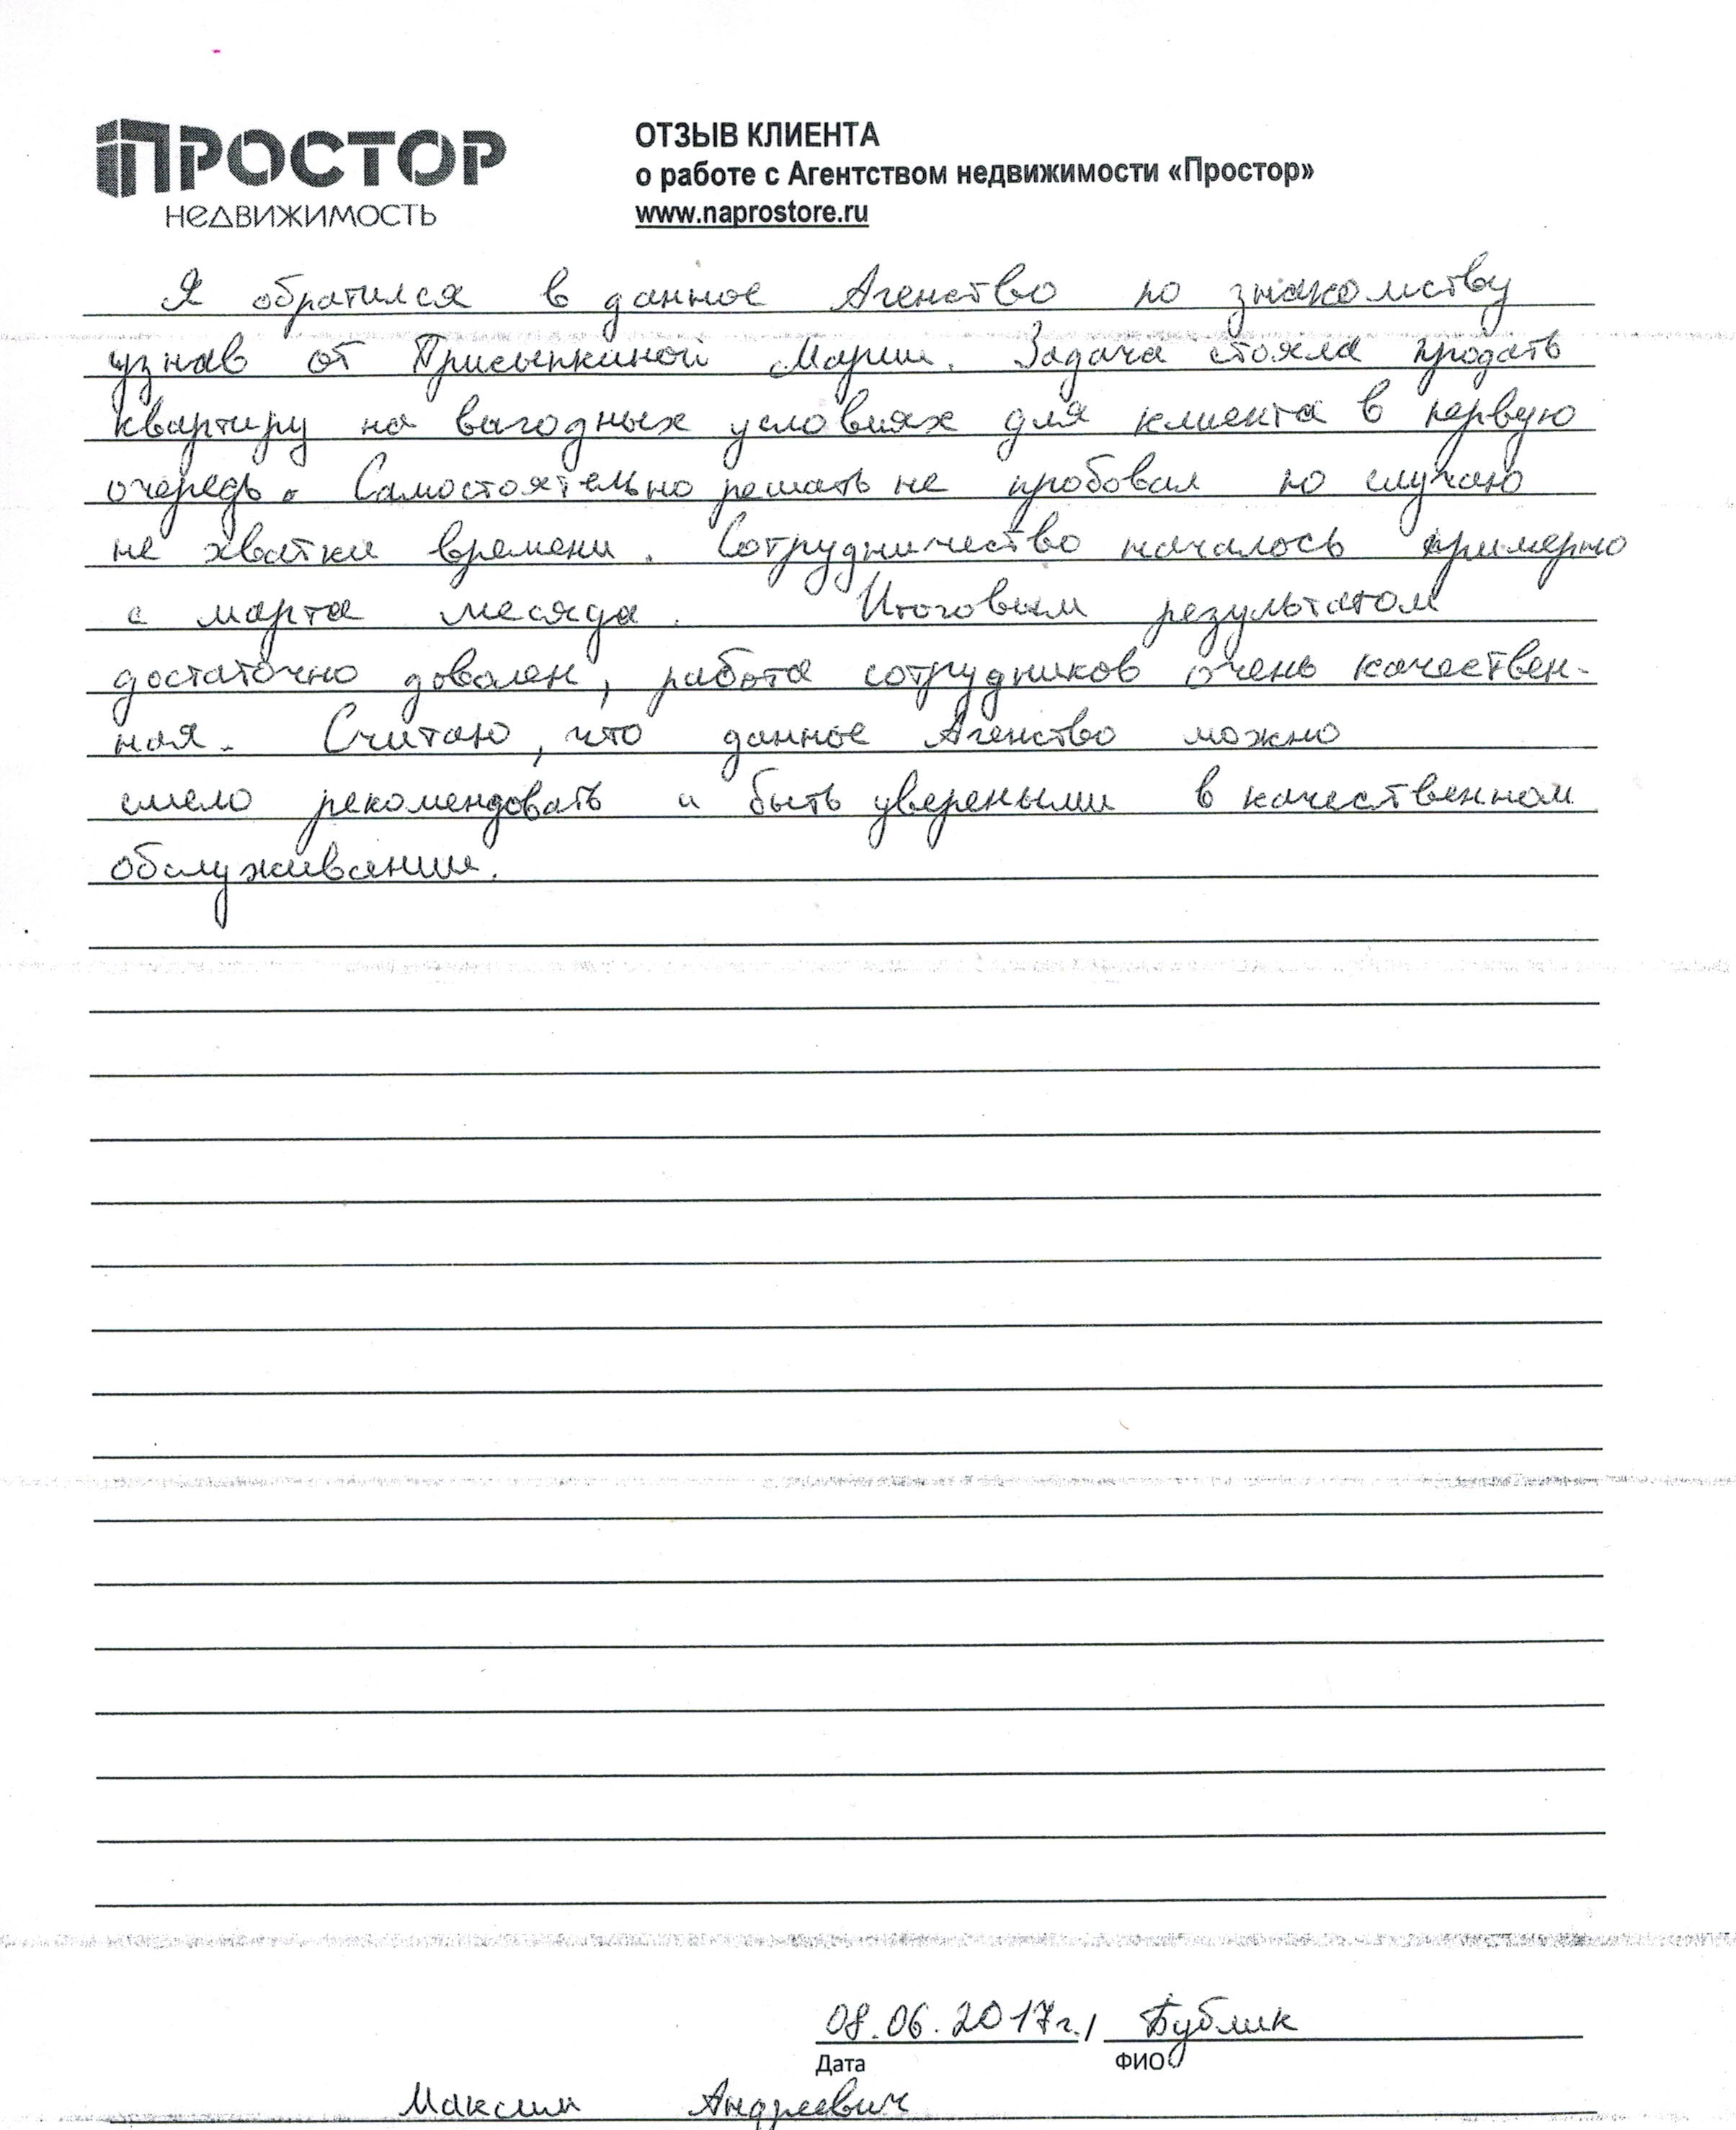 ПРОСТОР
НЕДВИЖИМОСТЬ
ОТЗЫВ КЛИЕНТА
о работе с Агентством недвижимости «Простор»
www.naprostore.ru
Я обратился в данное Агенство по знакомству
узнав от Присыпкиной Марии. Задача стояла продать
квартиру на выгодных условиях для клиента в первую
очередь. Самостоятельно решать не пробовал по случаю
не хватки времени. Сотрудничество началось примерно
с марта месяца. Итоговым результатом
достаточно доволен, работа сотрудников очень качествен-
ная. Считаю, что данное Агенство можно
смело рекомендовать и быть увереными в качественном
обслуживании.
08.06.2017г./ Бублик
Дата ФИО
Максим Андреевич